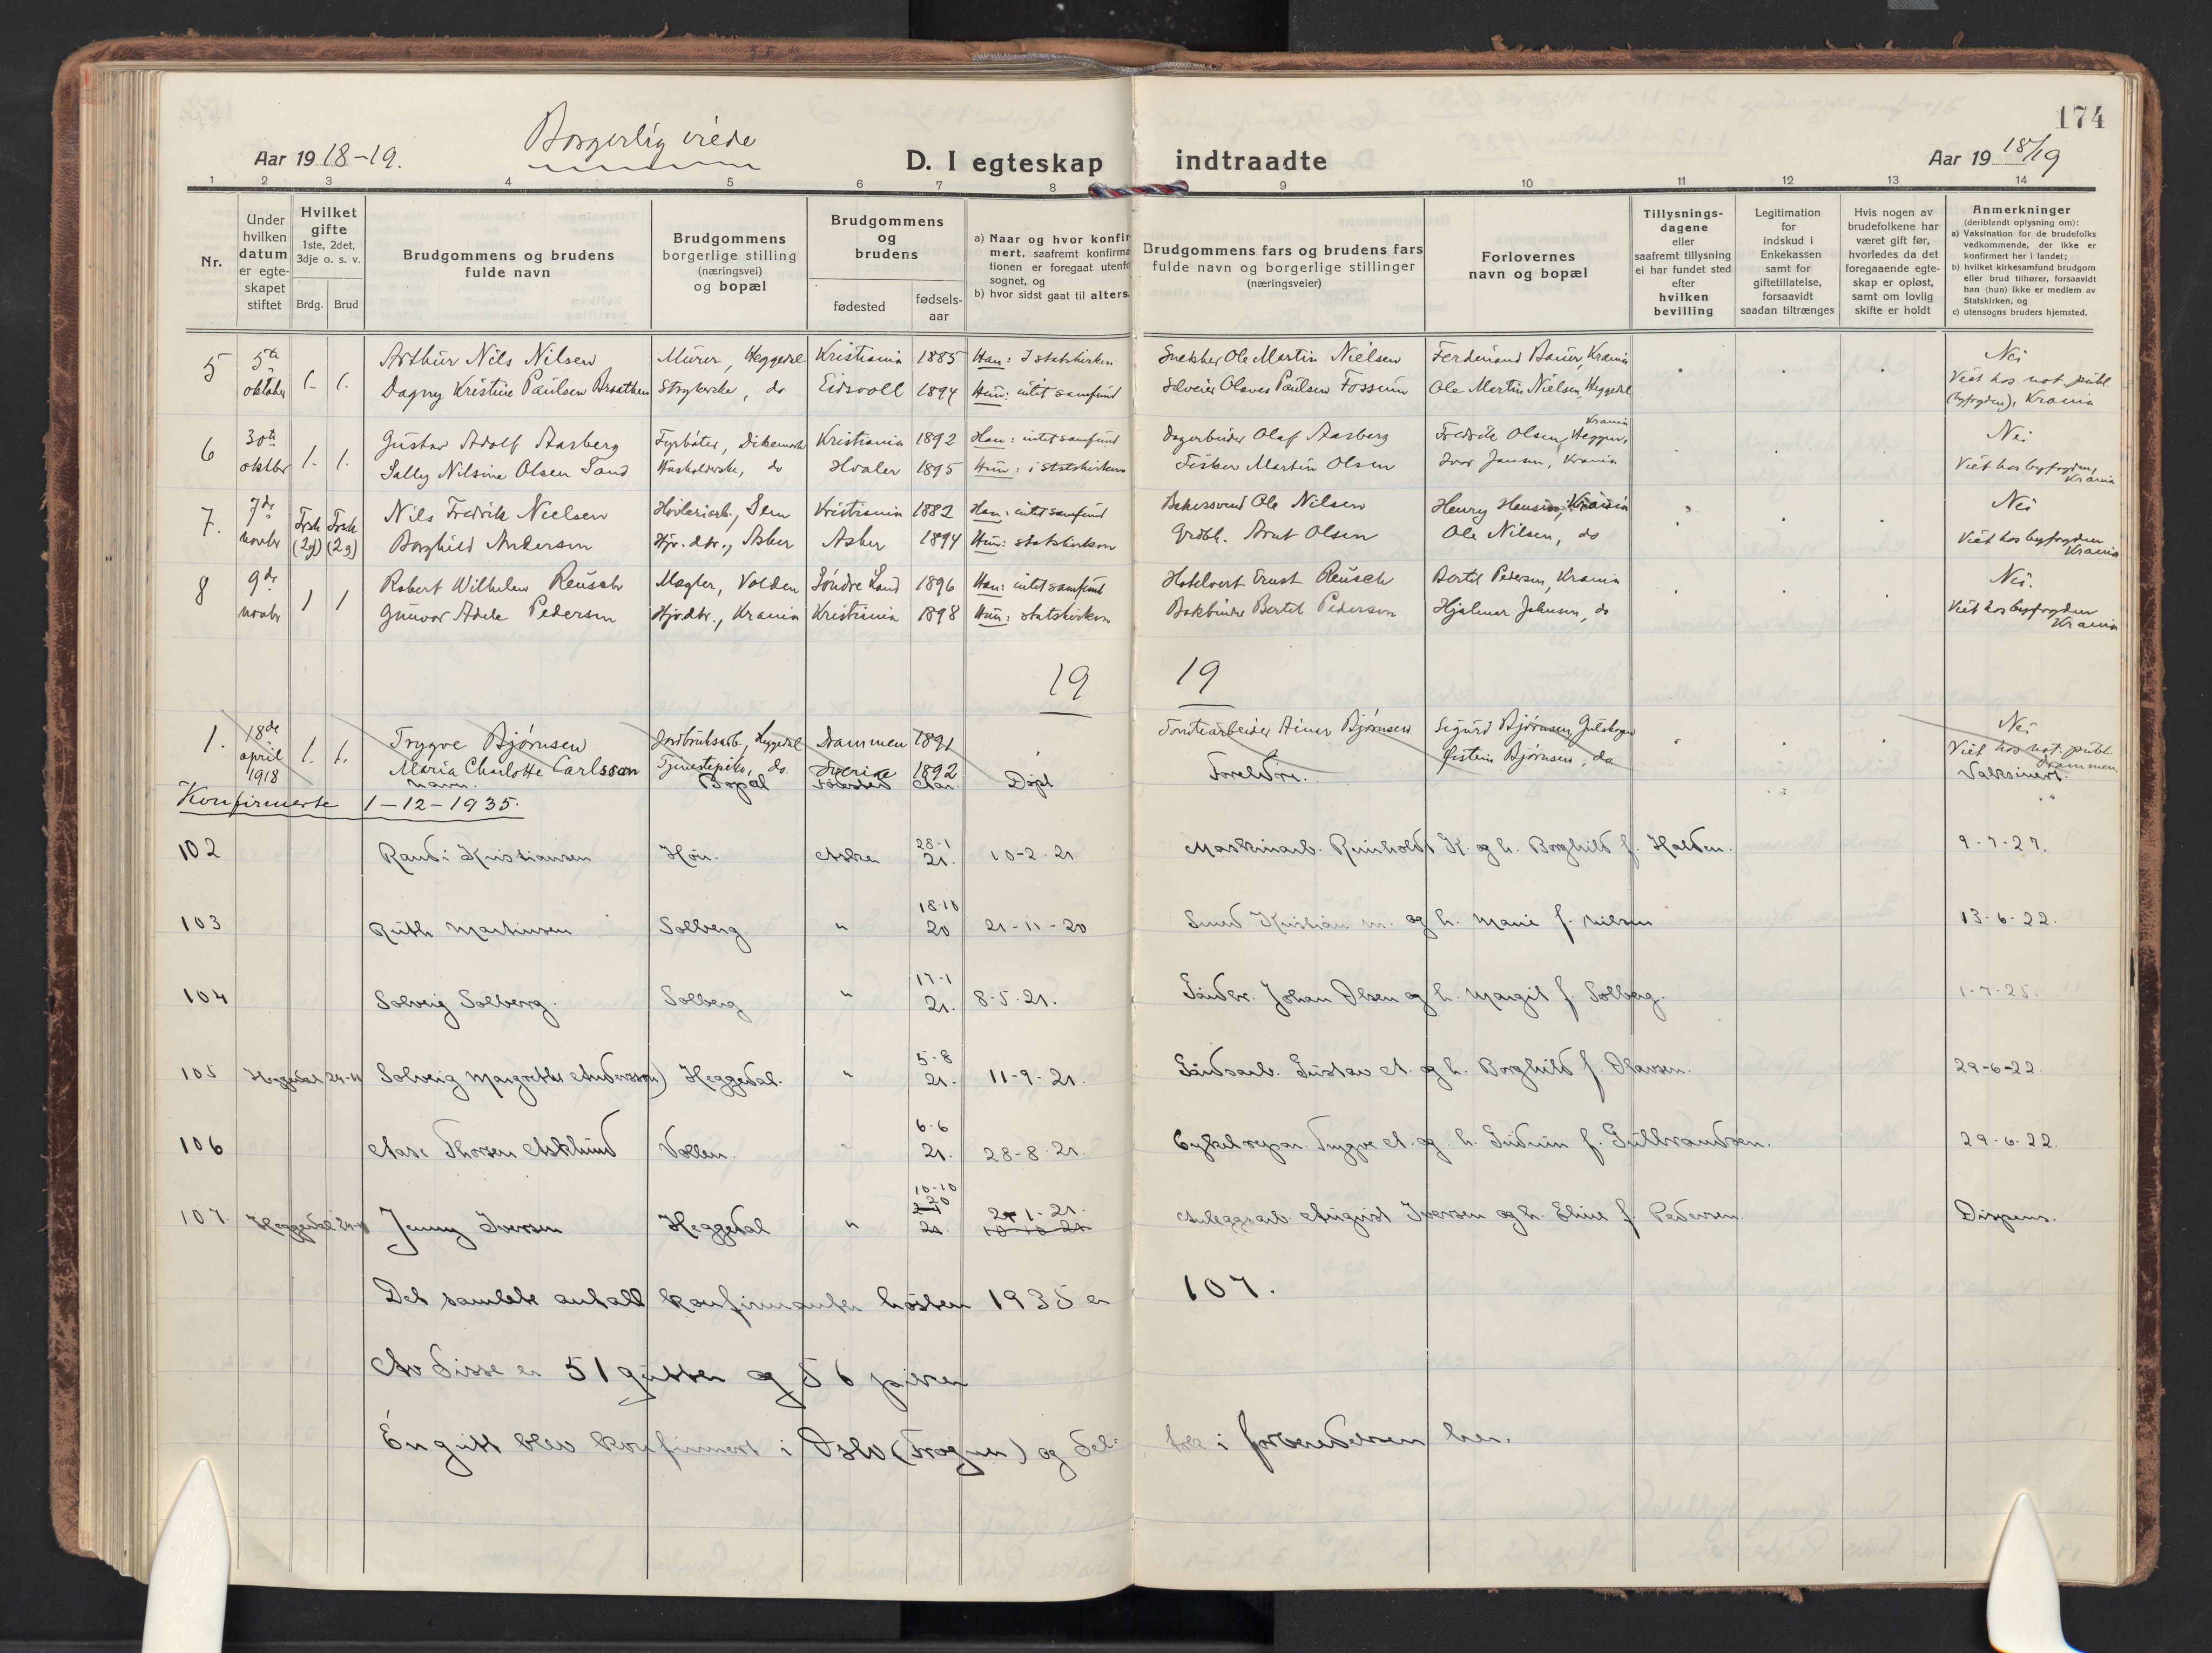 174
Borgerlig viede
Aar 1918-19. D. I egteskap indtraadte Aar 1918/19
1 2 3 4 5 6 7 8 9 10 11 12 13 14
Nr.
Under hvilken datum er egteskapet stiftet
Hvilket gifte 1ste, 2det, 3dje o. s. v.
Brdg. Brud
Brudgommens og brudens fulde navn
Brudgommens borgerlige stilling (næringsvei) og bopæl
Brudgommens og brudens
fødested fødsels-aar
a) Naar og hvor konfir
mert, saafremt konfirma
tionen er foregaat utenfo
sognet, og
b) hvor sidst gaat til alters
Brudgommens fars og brudens fars fulde navn og borgerlige stillinger (næringsveier)
Forlovernes navn og bopæl
Tillysnings-dagene eller saafremt tillysning ei har fundet sted efter hvilken bevilling
Legitimation for indskud i Enkekassen samt for giftetillatelse, forsaavidt saadan tiltrænges
Hvis nogen av brudefolkene har været gift før, hvorledes da det foregaaende egteskap er opløst, samt om lovlig skifte er holdt
Anmerkninger (deriblandt oplysning om):
a) Vaksination for de brudefolks vedkommende, der ikke er konfirmert her i landet;
b) hvilket kirkesamfund brudgom eller brud tilhører, forsaavidt han (hun) ikke er medlem av Statskirken, og
c) utensogns bruders hjemsted.
5 5te oktober 1. 1. Arthur Nils Nilsen Murer, Heggedal Kristiania 1885 Han: I statskirken Snekker Ole Martin Nielsen Ferdinand Bauer, Krania Nei
Dagny Kristine Paulsen Braathen Strykerske, do Eidsvoll 1894 Hun: intet samfund Selveier Olaves Paulsen Fossum Ole Martin Nielsen, Heggedal Viet hos not. publ. (byfogden), Krania
6 30te oktbr 1. 1. Gustav Adolf Aasberg Fyrbøter, Dikemark Kristiania 1892 Han: intet samfund Olaf Aasberg Fredrik Olsen, Krania Nei
Sally Nilsine Olsen Sand Husholderske, do Hvaler 1895 Hun: i statskirken Fisker Martin Olsen Ivar Jansen, Krania Viet hos byfogden, Krania
7. 7de novbr Frsk (2g) Frsk (2g) Nils Fredrik Nielsen Høvleriarb., Kristiania 1882 Han: intet samfund Bakersvend Ole Nilsen Henry Hansen, Krania Nei
Borghild Andersen Hjv. dtr., Asker Asker 1894 Hun: statskirken Grdbr. Arnt Olsen Ole Nilsen, do Viet hos byfogden Krania
8 9de novbr 1 1 Robert Wilhelm Reusch Mægler, Volden Søndre Land 1896 Han: intet samfund Hotelvert Ernst Reusch Bertil Pedersen, Krania Nei.
Gunvor Adele Pedersen Hjv. dtr., Krania Kristiania 1898 Hun: statskirken Bokbinder Bertil Pedersen Hjalmar Johnsen, do Viet hos byfogden Krania
19 19
1. 18de april 1918 1. 1. Trygve Bjørnsen Jordbruksarb., Heggedal Drammen 1891 Tomtearbeider Einar Bjørnsen Sigurd Bjørnsen, Gulskogen Nei
Maria Charlotte Carlsson Tjenestepike, do. Sverige 1892 Øistein Bjørnsen, do Viet hos not. publ. Drammen
Navn. Bopæl Fødested Aar. Døpt Foreldre. Vaksinert.
Konfirmerte 1-12-1935.
102 Randi Kristiansen Høn. Asker 28-1 21. 10-2-21 Maskinarb. Reinholdt K. og h. Borghild f. Halden. 9-7-27.
103 Ruth Martinsen Solberg. " 18-10 20 21-11-20 Smed Kristian M. og h. Marie f. Nilsen 13-6-22.
104 Solveig Solberg. Solberg " 17-1 21. 8-5-21. Johan Olsen og h. Margit f. Solberg. 1-7-25.
105 Heggedal 24-11 Solveig Margrethe Anderson) Heggedal. " 5-8 21. 11-9-21. Gustav A. og h. Borghild f. Olavsen. 29-6-22.
106 Aase Thorsen Asklund Vollen. " 6-6 21. 28-8-21. Cykelrepar. Trygve A. og h. Gudrun f. Gulbrandsen. 29-6-22.
107. Heggedal 24-11 Jenny Iversen Heggedal " 10-10 20 21. 24-1-21. 10-10-21 Anleggsarb. August Iversen og h. Eline f. Pedersen. Dispens.
Det samlete antall konfirmanter høsten 1935 er 107.
Av disse er 51 gutter og 56 piker
Én gutt blev konfirmert i Oslo (Frogner) og del- tok i forberedelsen her.